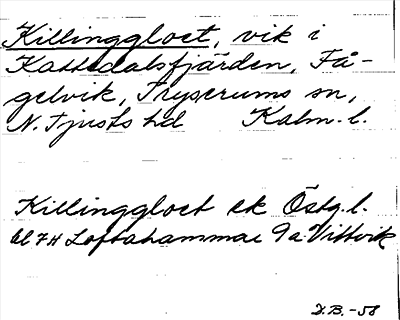 Killinggloet, vik i
Kattedalsfjärden, Få-
gelvik, Tryserums sn,
N. Tjusts hd Kalm. l.
Killinggloet ek Östg. l.
bl 7H Loftahammar 9a Vittvik
D.B. -58